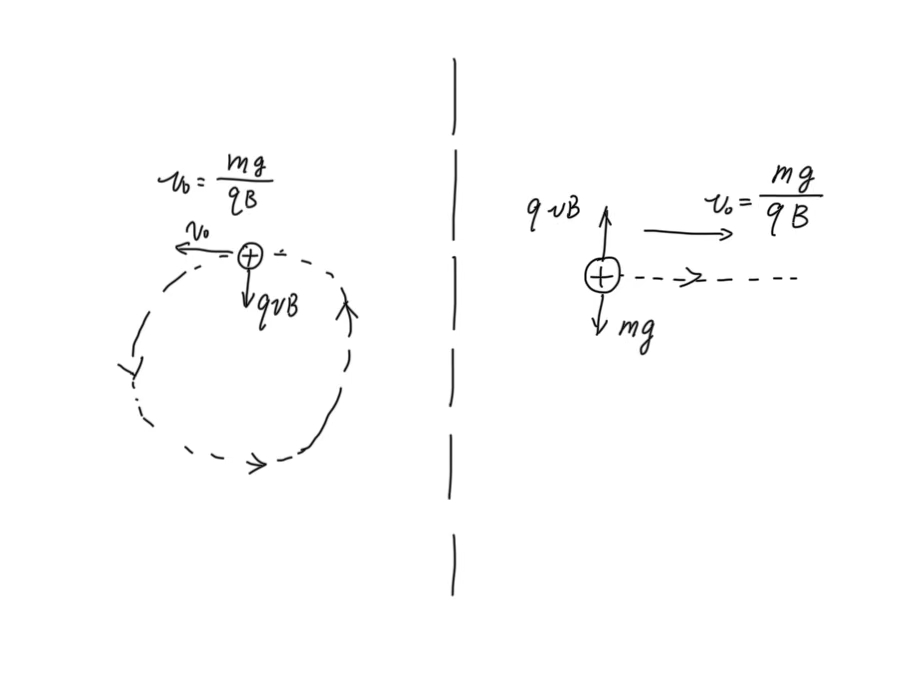 v₀ = mg/qB
v₀
+
qvB
qvB
v₀ = mg/qB
+
mg